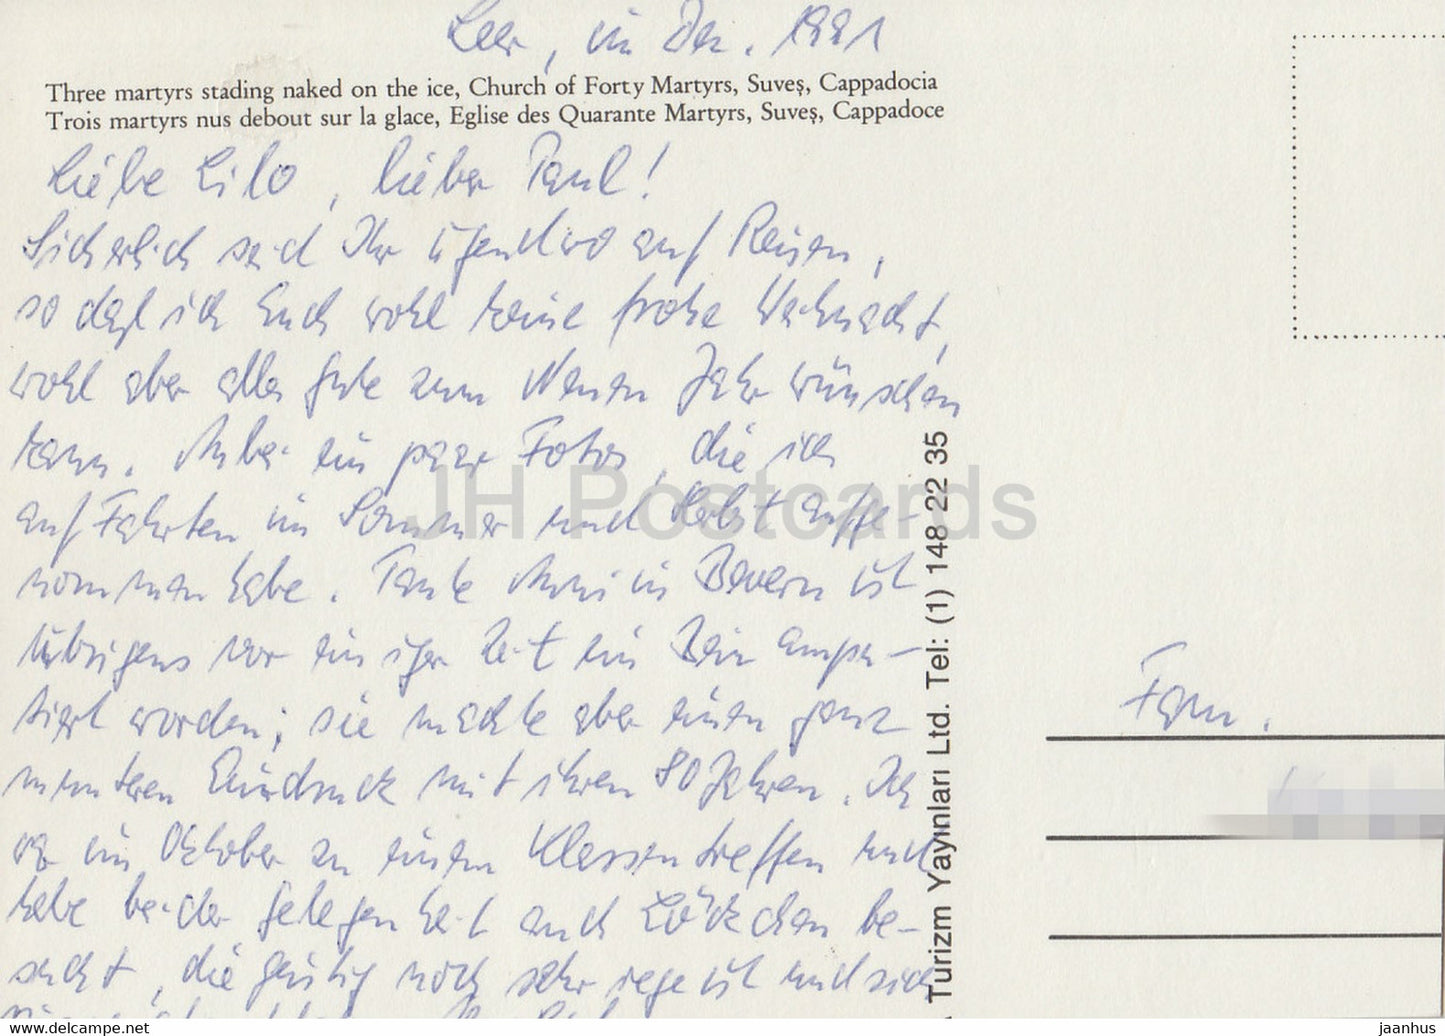 Leer, im Dez. 1991
Three martyrs stading naked on the ice, Church of Forty Martyrs, Suveş, Cappadocia
Trois martyrs nus debout sur la glace, Eglise des Quarante Martyrs, Suveş, Cappadoce
Liebe Lilo, lieber Paul!
Sicherlich seid Ihr irgendwo auf Reisen,
so daß ich Euch wohl keine frohe Weihnacht,
wohl aber alles Gute zum Neuen Jahr wünschen
kann. Anbei ein paar Fotos, die ich
auf Fahrten im Sommer und Herbst aufge-
nommen habe. Tante Anni in Bevern ist
übrigens vor einiger Zeit ein Bein ampu-
tiert worden; sie machte aber einen ganz
munteren Eindruck mit ihren 80 Jahren. Ich
war im Oktober zu einem Klassentreffen und
habe bei der Gelegenheit auch Löckchen be-
sucht, die geistig noch sehr rege ist und sich
Turizm Yayınları Ltd. Tel: (1) 148 22 35
Fam.
JH Postcards
www.delcampe.net
jaanhus